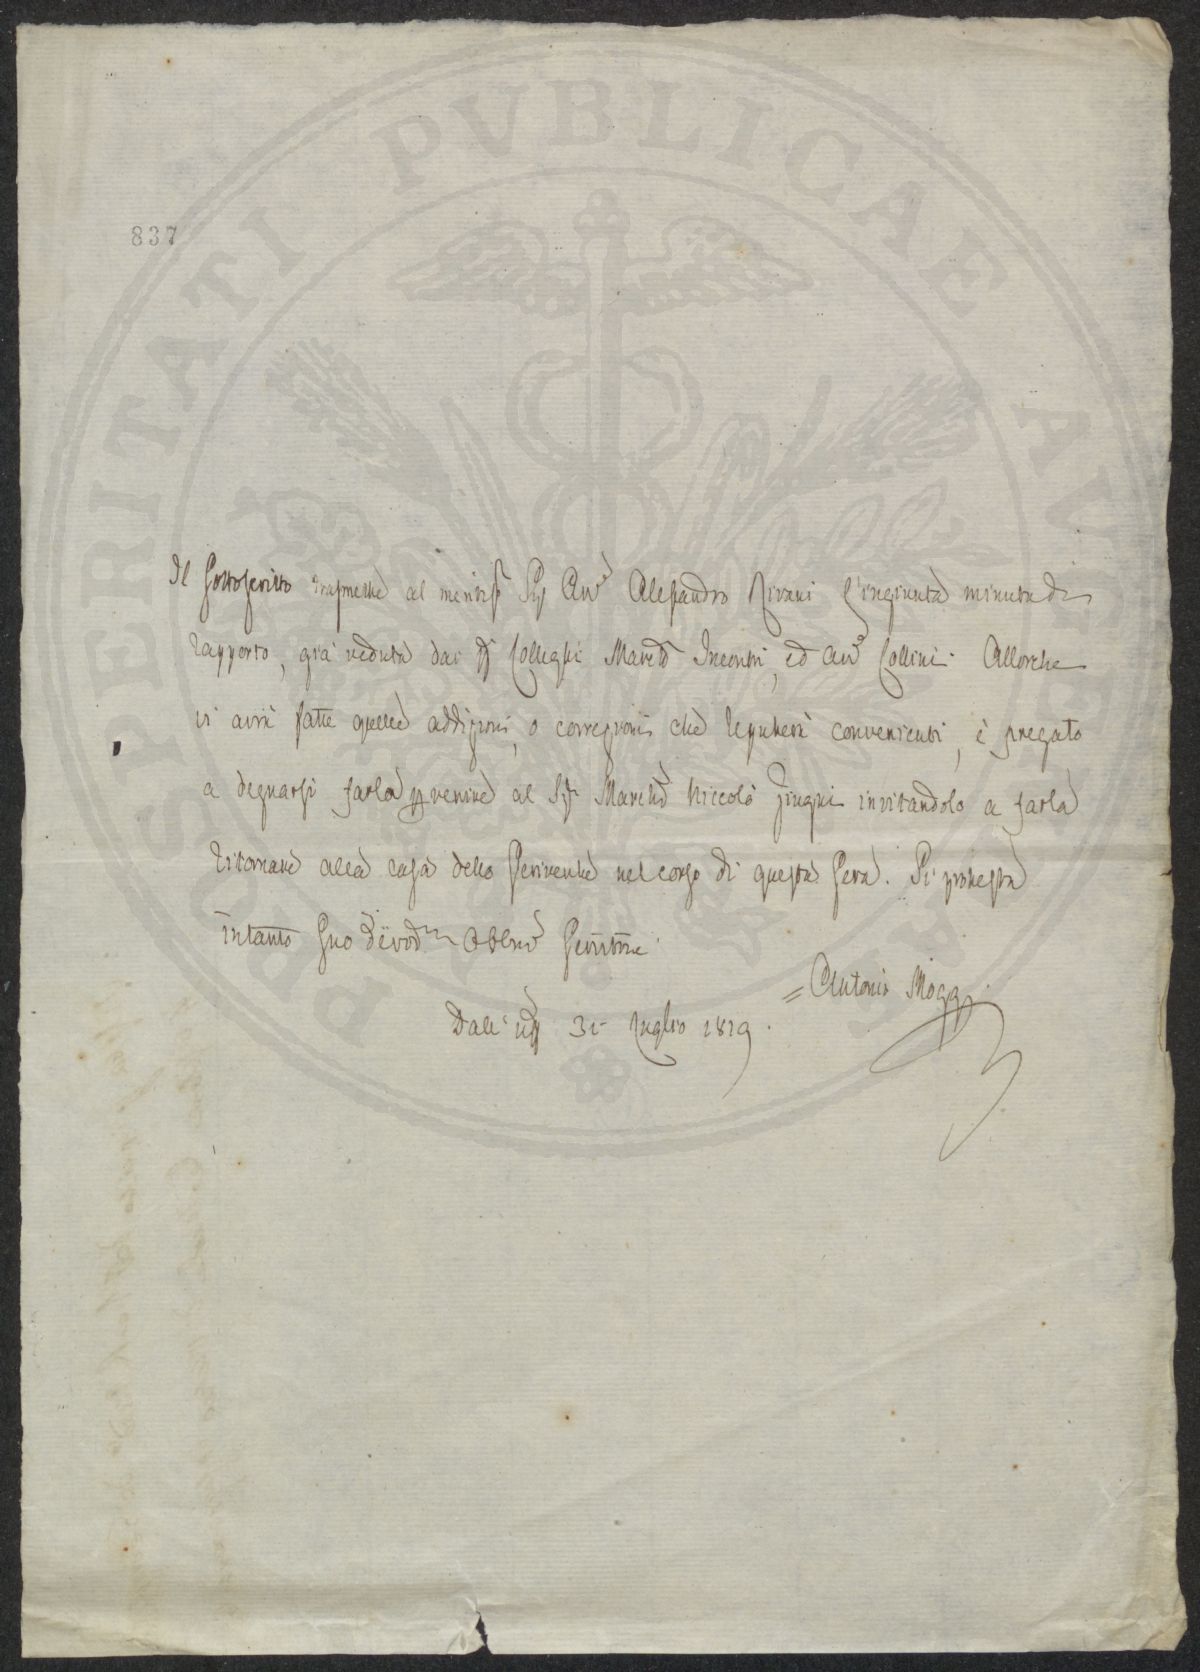 PROSPERITATI PVBLICAE AVGENDAE
837
Il Sottoscritto trasmette al meritiss Sig Avv Alessandro Rivani l'ingiunta minuta di
rapporto, già veduta dai SS Colleghi March Incontri, ed Avv Collini. Allorche
vi avrà fatte quelle addizioni, o correzioni che reputerà convenienti, è pregato
a degnarsi farla pervenire al Sig March Niccolò invitandolo a farla
ritornare alla casa dello Scrivente nel corso di questa sera. Si protesta
intanto suo devot obbmo servitore
= Antonio Mogg
Dall 31 Luglio 1819.